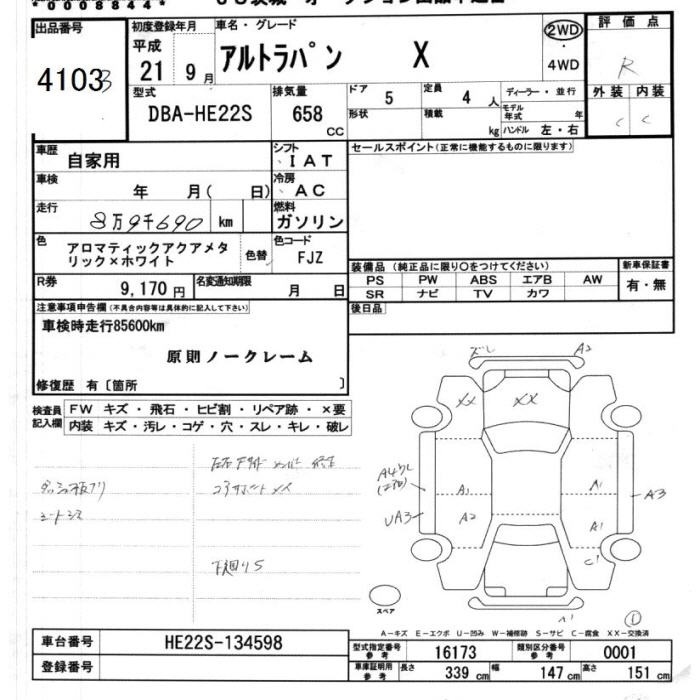 *0008844*
出品番号 初度登録年月 車名・グレード 2WD 評価点
4103 3 平成 21 9月 アルトラパン X 4WD R
型式 排気量 ドア 定員 ディーラー・並行 外装 内装
DBA-HE22S 658 CC 5 4 人 モデル年式 年 C C
形状 積載 kg ハンドル 左・右
車歴 自家用 シフト IAT セールスポイント(正常に機能するものに限ります)
車検 年 月( 日) 冷房 AC
走行 8万9千690 km 燃料 ガソリン
色 アロマティックアクアメタ 色替 色コード
リック×ホワイト FJZ
装備品(純正品に限り○をつけてください) 新車保証書
PS PW ABS エアB AW 有・無
SR ナビ TV カワ
R券 9,170円 名変通知期限 月 日
後日品
注意事項申告欄(不具合内容等は具体的に記入して下さい)
車検時走行85600km
原則ノークレーム
修復歴 有〔箇所 〕
検査員記入欄 FW キズ・飛石・ヒビ割・リペア跡・×要
内装 キズ・汚レ・コゲ・穴・スレ・キレ・破レ
ズレ A2
XX XX
A1 A1 A3
UA3 A2 A1
C1
下廻りS
スペア A1 ①
A―キズ E―エクボ U―凹み W―補修跡 S―サビ C―腐食 XX―交換済
車台番号 HE22S-134598 型式指定番号 参考 16173 類別区分番号 参考 0001
登録番号 車庫証明用 参考 長さ 339 cm 幅 147 cm 高さ 151 cm